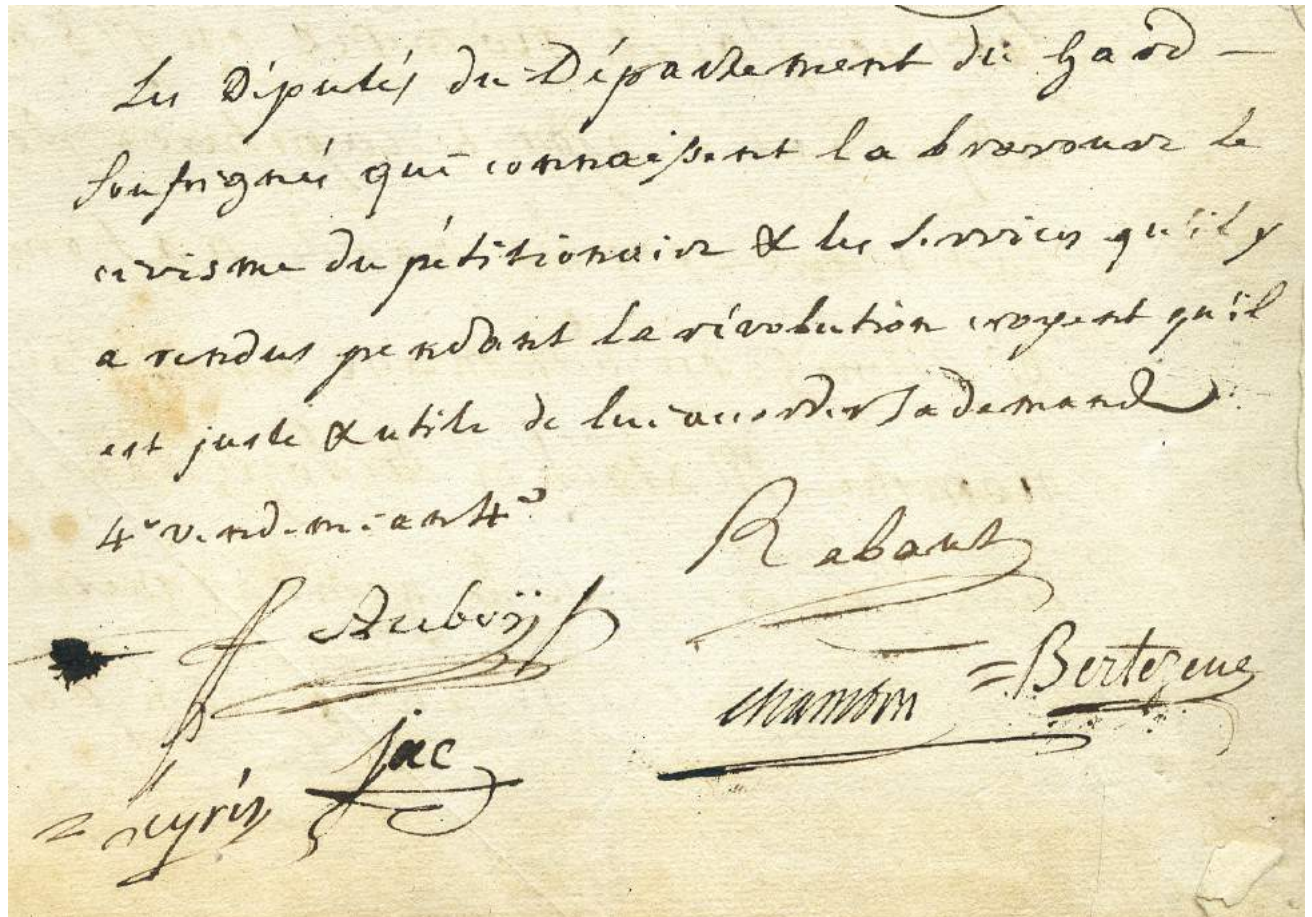 Les Députés du Département du Gard -
soussignés qui connaissent la bravoure le
civisme du pétitionaire & les services qu'il y
a rendus pendant la révolution croyent qu'il
est juste & utile de lui accorder sa demande
4e vendemie an 4e
Rabaut
Aubry
chambon = Bertezene
Jac